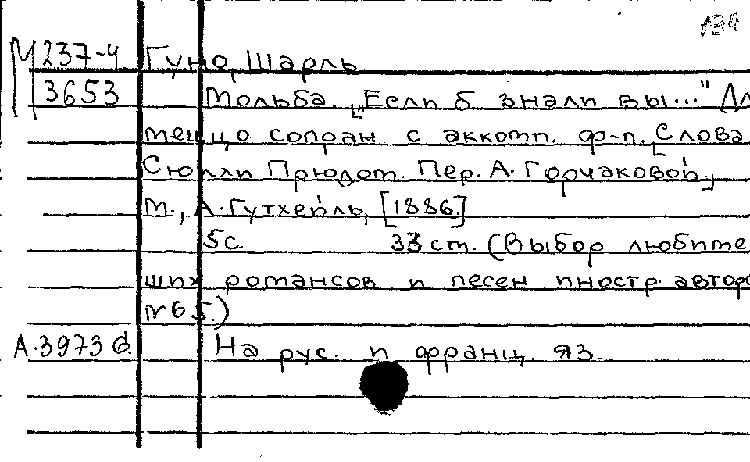 134
М 237-4 Гуно, Шарль
3653 Мольба. „Если б знали вы..." Дл
меццо сопран с аккомп. ф-п. [Слова
Сюлли Прюдом. Пер. А. Горчаковой.]
М., А. Гутхейль, [1886.]
5с. 33 ст. (Выбор любите
ших романсов и песен иностр. автор
№65.)
А.3973 На рус. и франц. яз